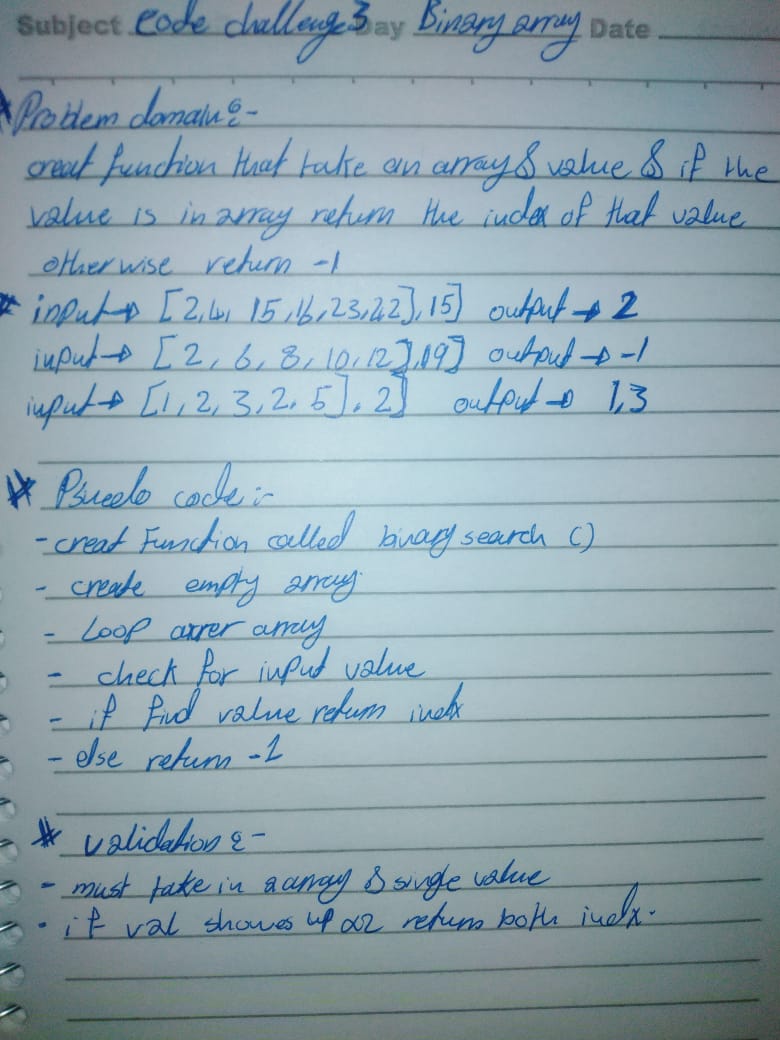 Subject Code challenge 3 Day Binary array Date
* Problem domain :-
creat function that take an array & value & if the
value is in array return the index of that value
otherwise return -1
* input → [2,4, 15,16,23,42],15] output → 2
input → [2, 6, 8, 10, 12],19] output → -1
input → [1, 2, 3, 2, 5], 2] output → 1,3
* Pseudo code :-
- creat Function called binary search ()
- create empty array
- Loop array
- check for input value
- if find value return indx
- else return -1
* validation :-
- must take in a array & single value
- if val shows up return both indx.